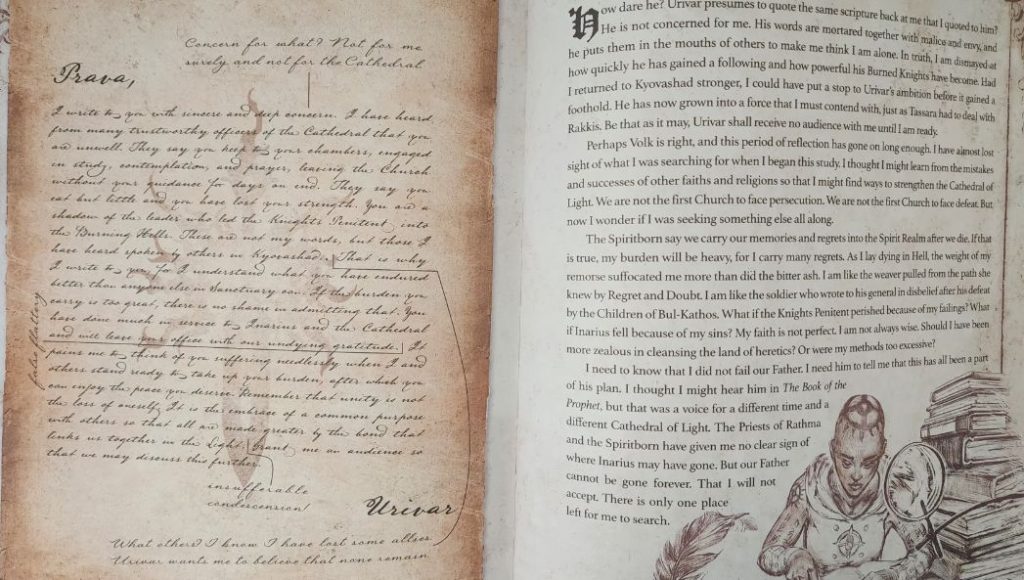 Concern for what? Not for me
surely and not for the Cathedral
Prava,
I write to you with sincere and deep concern. I have heard
from many trustworthy officers of the Cathedral that you
are unwell. They say you keep to your chambers, engaged
in study, contemplation, and prayer, leaving the Church
without your guidance for days on end. They say you
eat but little and you have lost your strength. You are a
shadow of the leader who led the Knights Penitent into
the Burning Hells. These are not my words, but those I
have heard spoken by others in Kyovashad. That is why
I write to you, for I understand what you have endured
better than anyone else in Sanctuary can. If the burden you
carry is too great, there is no shame in admitting that. You
have done much in service to Inarius and the Cathedral
and will leave your office with our undying gratitude. It
pains me to think of you suffering needlessly when I and
others stand ready to take up your burden, after which you
can enjoy the peace you deserve. Remember that unity is not
the loss of oneself. It is the embrace of a common purpose
with others so that all are made greater by the bond that
links us together in the Light. Grant me an audience so
that we may discuss this further.
false flattery
insufferable
condescension!
Urivar
What others? I know I have lost some allies
Urivar wants me to believe that none remain
How dare he? Urivar presumes to quote the same scripture back at me that I quoted to him?
He is not concerned for me. His words are mortared together with malice and envy, and
he puts them in the mouths of others to make me think I am alone. In truth, I am dismayed at
how quickly he has gained a following and how powerful his Burned Knights have become. Had
I returned to Kyovashad stronger, I could have put a stop to Urivar's ambition before it gained a
foothold. He has now grown into a force that I must contend with, just as Tassara had to deal with
Rakkis. Be that as it may, Urivar shall receive no audience with me until I am ready.
Perhaps Volk is right, and this period of reflection has gone on long enough. I have almost lost
sight of what I was searching for when I began this study. I thought I might learn from the mistakes
and successes of other faiths and religions so that I might find ways to strengthen the Cathedral of
Light. We are not the first Church to face persecution. We are not the first Church to face defeat. But
now I wonder if I was seeking something else all along.
The Spiritborn say we carry our memories and regrets into the Spirit Realm after we die. If that
is true, my burden will be heavy, for I carry many regrets. As I lay dying in Hell, the weight of my
remorse suffocated me more than did the bitter ash. I am like the weaver pulled from the path she
knew by Regret and Doubt. I am like the soldier who wrote to his general in disbelief after his defeat
by the Children of Bul-Kathos. What if the Knights Penitent perished because of my failings? What
if Inarius fell because of my sins? My faith is not perfect. I am not always wise. Should I have been
more zealous in cleansing the land of heretics? Or were my methods too excessive?
I need to know that I did not fail our Father. I need him to tell me that this has all been a part
of his plan. I thought I might hear him in The Book of the
Prophet, but that was a voice for a different time and a
different Cathedral of Light. The Priests of Rathma
and the Spiritborn have given me no clear sign of
where Inarius may have gone. But our Father
cannot be gone forever. That I will not
accept. There is only one place
left for me to search.